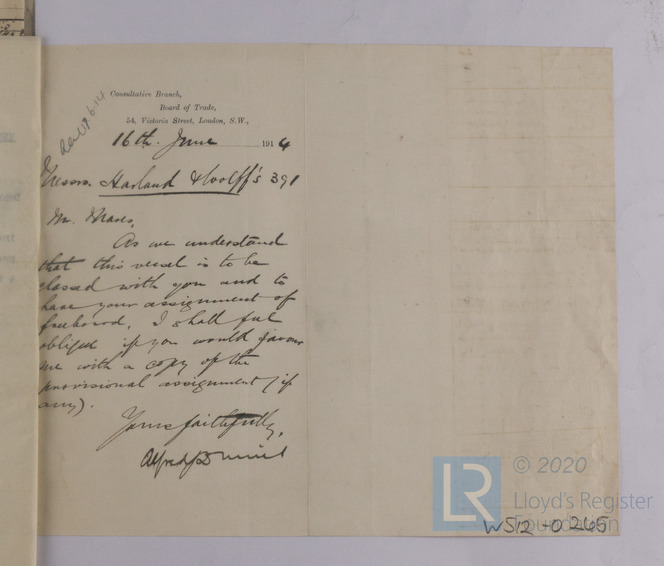 Consultative Branch,
Board of Trade,
54, Victoria Street, London, S.W.,
16th. June 1914
Messrs. Harland & Wolff's 391
Mr.
As we understand
that this vessel is to be
classed with you and to
have your assignment of
freeboard, I shall feel
obliged if you would favour
me with a copy of the
provisional assignment (if
any).
Yours faithfully,
Alfred J.
LR
© 2020
Lloyd's Register
Foundation
W512-0265